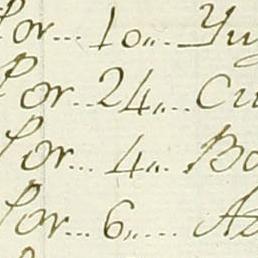 Por... 10,,. Yu
Por...24,,... Cu
Por... 4,,.. Bo
Por... 6,,..... As